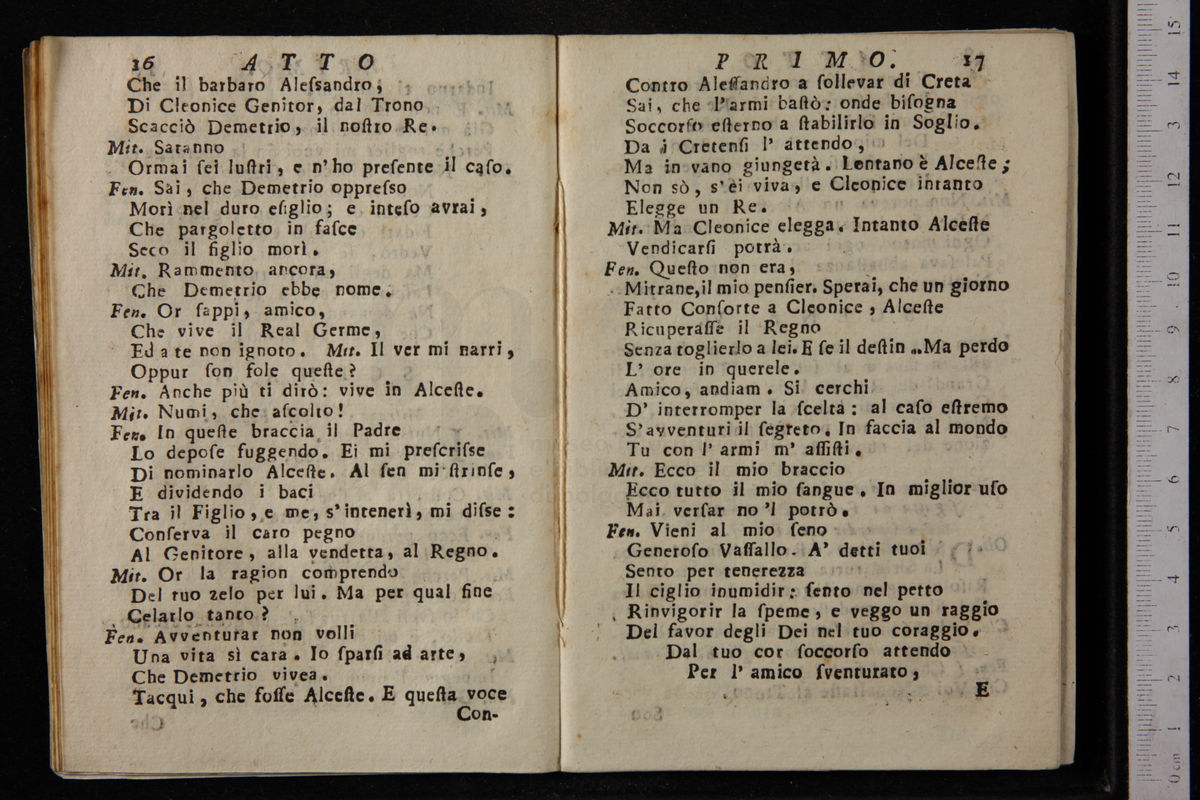 16 ATTO
Che il barbaro Aleſsandro,
Di Cleonice Genitor, dal Trono
Scacciò Demetrio, il noſtro Re.
Mit. Saranno
Ormai ſei luſtri, e n'ho preſente il caſo.
Fen. Sai, che Demetrio oppreſso
Morì nel duro eſiglio; e inteſo avrai,
Che pargoletto in faſce
Seco il figlio morì.
Mit. Rammento ancora,
Che Demetrio ebbe nome.
Fen. Or ſappi, amico,
Che vive il Real Germe,
Ed a te non ignoto. Mit. Il ver mi narri,
Oppur ſon fole queſte?
Fen. Anche più ti dirò: vive in Alceſte.
Mit. Numi, che aſcolto!
Fen. In queſte braccia il Padre
Lo depoſe fuggendo. Ei mi preſcriſse
Di nominarlo Alceſte. Al ſen mi ſtrinſe,
E dividendo i baci
Tra il Figlio, e me, s'intenerì, mi diſse:
Conſerva il caro pegno
Al Genitore, alla vendetta, al Regno.
Mit. Or la ragion comprendo
Del tuo zelo per lui. Ma per qual fine
Celarlo tanto?
Fen. Avventurar non volli
Una vita sì cara. Io ſparſi ad arte,
Che Demetrio vivea.
Tacqui, che foſſe Alceſte. E queſta voce
Con-
PRIMO. 17
Contro Aleſſandro a ſollevar di Creta
Sai, che l'armi baſtò: onde biſogna
Soccorſo eſterno a ſtabilirlo in Soglio.
Da i Cretenſi l' attendo,
Ma in vano giungerà. Lontano è Alceſte;
Non sò, s'ei viva, e Cleonice intanto
Elegge un Re.
Mit. Ma Cleonice elegga. Intanto Alceſte
Vendicarſi potrà.
Fen. Queſto non era,
Mitrane, il mio penſier. Sperai, che un giorno
Fatto Conſorte a Cleonice, Alceſte
Ricuperaſſe il Regno
Senza toglierlo a lei. E ſe il deſtin ..Ma perdo
L' ore in querele.
Amico, andiam. Si cerchi
D' interromper la ſcelta: al caſo eſtremo
S'avventuri il ſegreto. In faccia al mondo
Tu con l' armi m' aſſiſti.
Mit. Ecco il mio braccio
Ecco tutto il mio ſangue. In miglior uſo
Mai verſar no 'l potrò.
Fen. Vieni al mio ſeno
Generoſo Vaſſallo. A' detti tuoi
Sento per tenerezza
Il ciglio inumidir: ſento nel petto
Rinvigorir la ſpeme, e veggo un raggio
Del favor degli Dei nel tuo coraggio.
Dal tuo cor ſoccorſo attendo
Per l' amico ſventurato,
E
0 cm 1 2 3 4 5 6 7 8 9 10 11 12 13 14 15